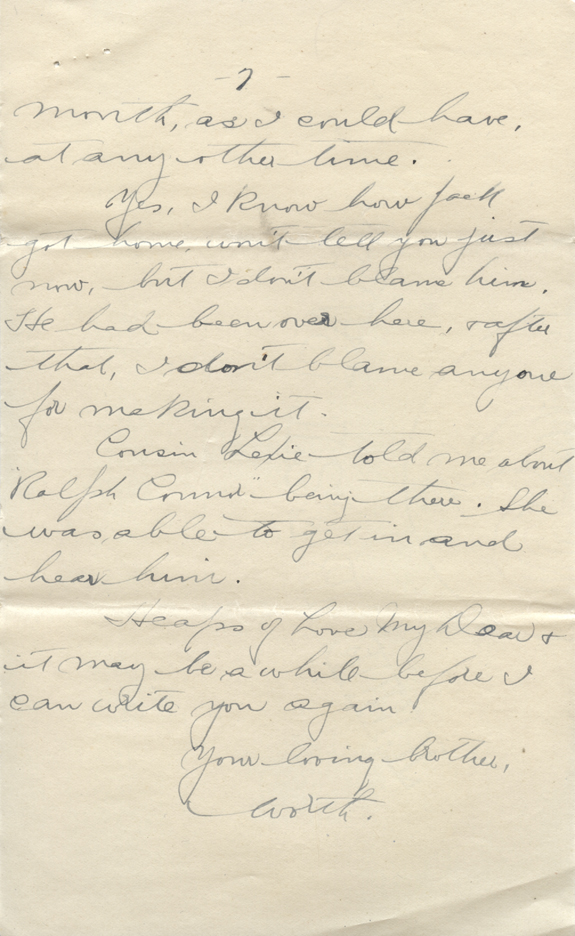 -7-
month, as I could have,
at any other time.
Yes, I know how Jack
got home, won't tell you just
now, but I don't blame him.
He had been over here, & after
that, I don't blame anyone
for making it.
Cousin Lexie told me about
"Ralph Connor" being there. She
was able to get in and
hear him.
Heaps of Love My Dear &
it may be a while before I
can write you again.
Your loving brother,
Worth.